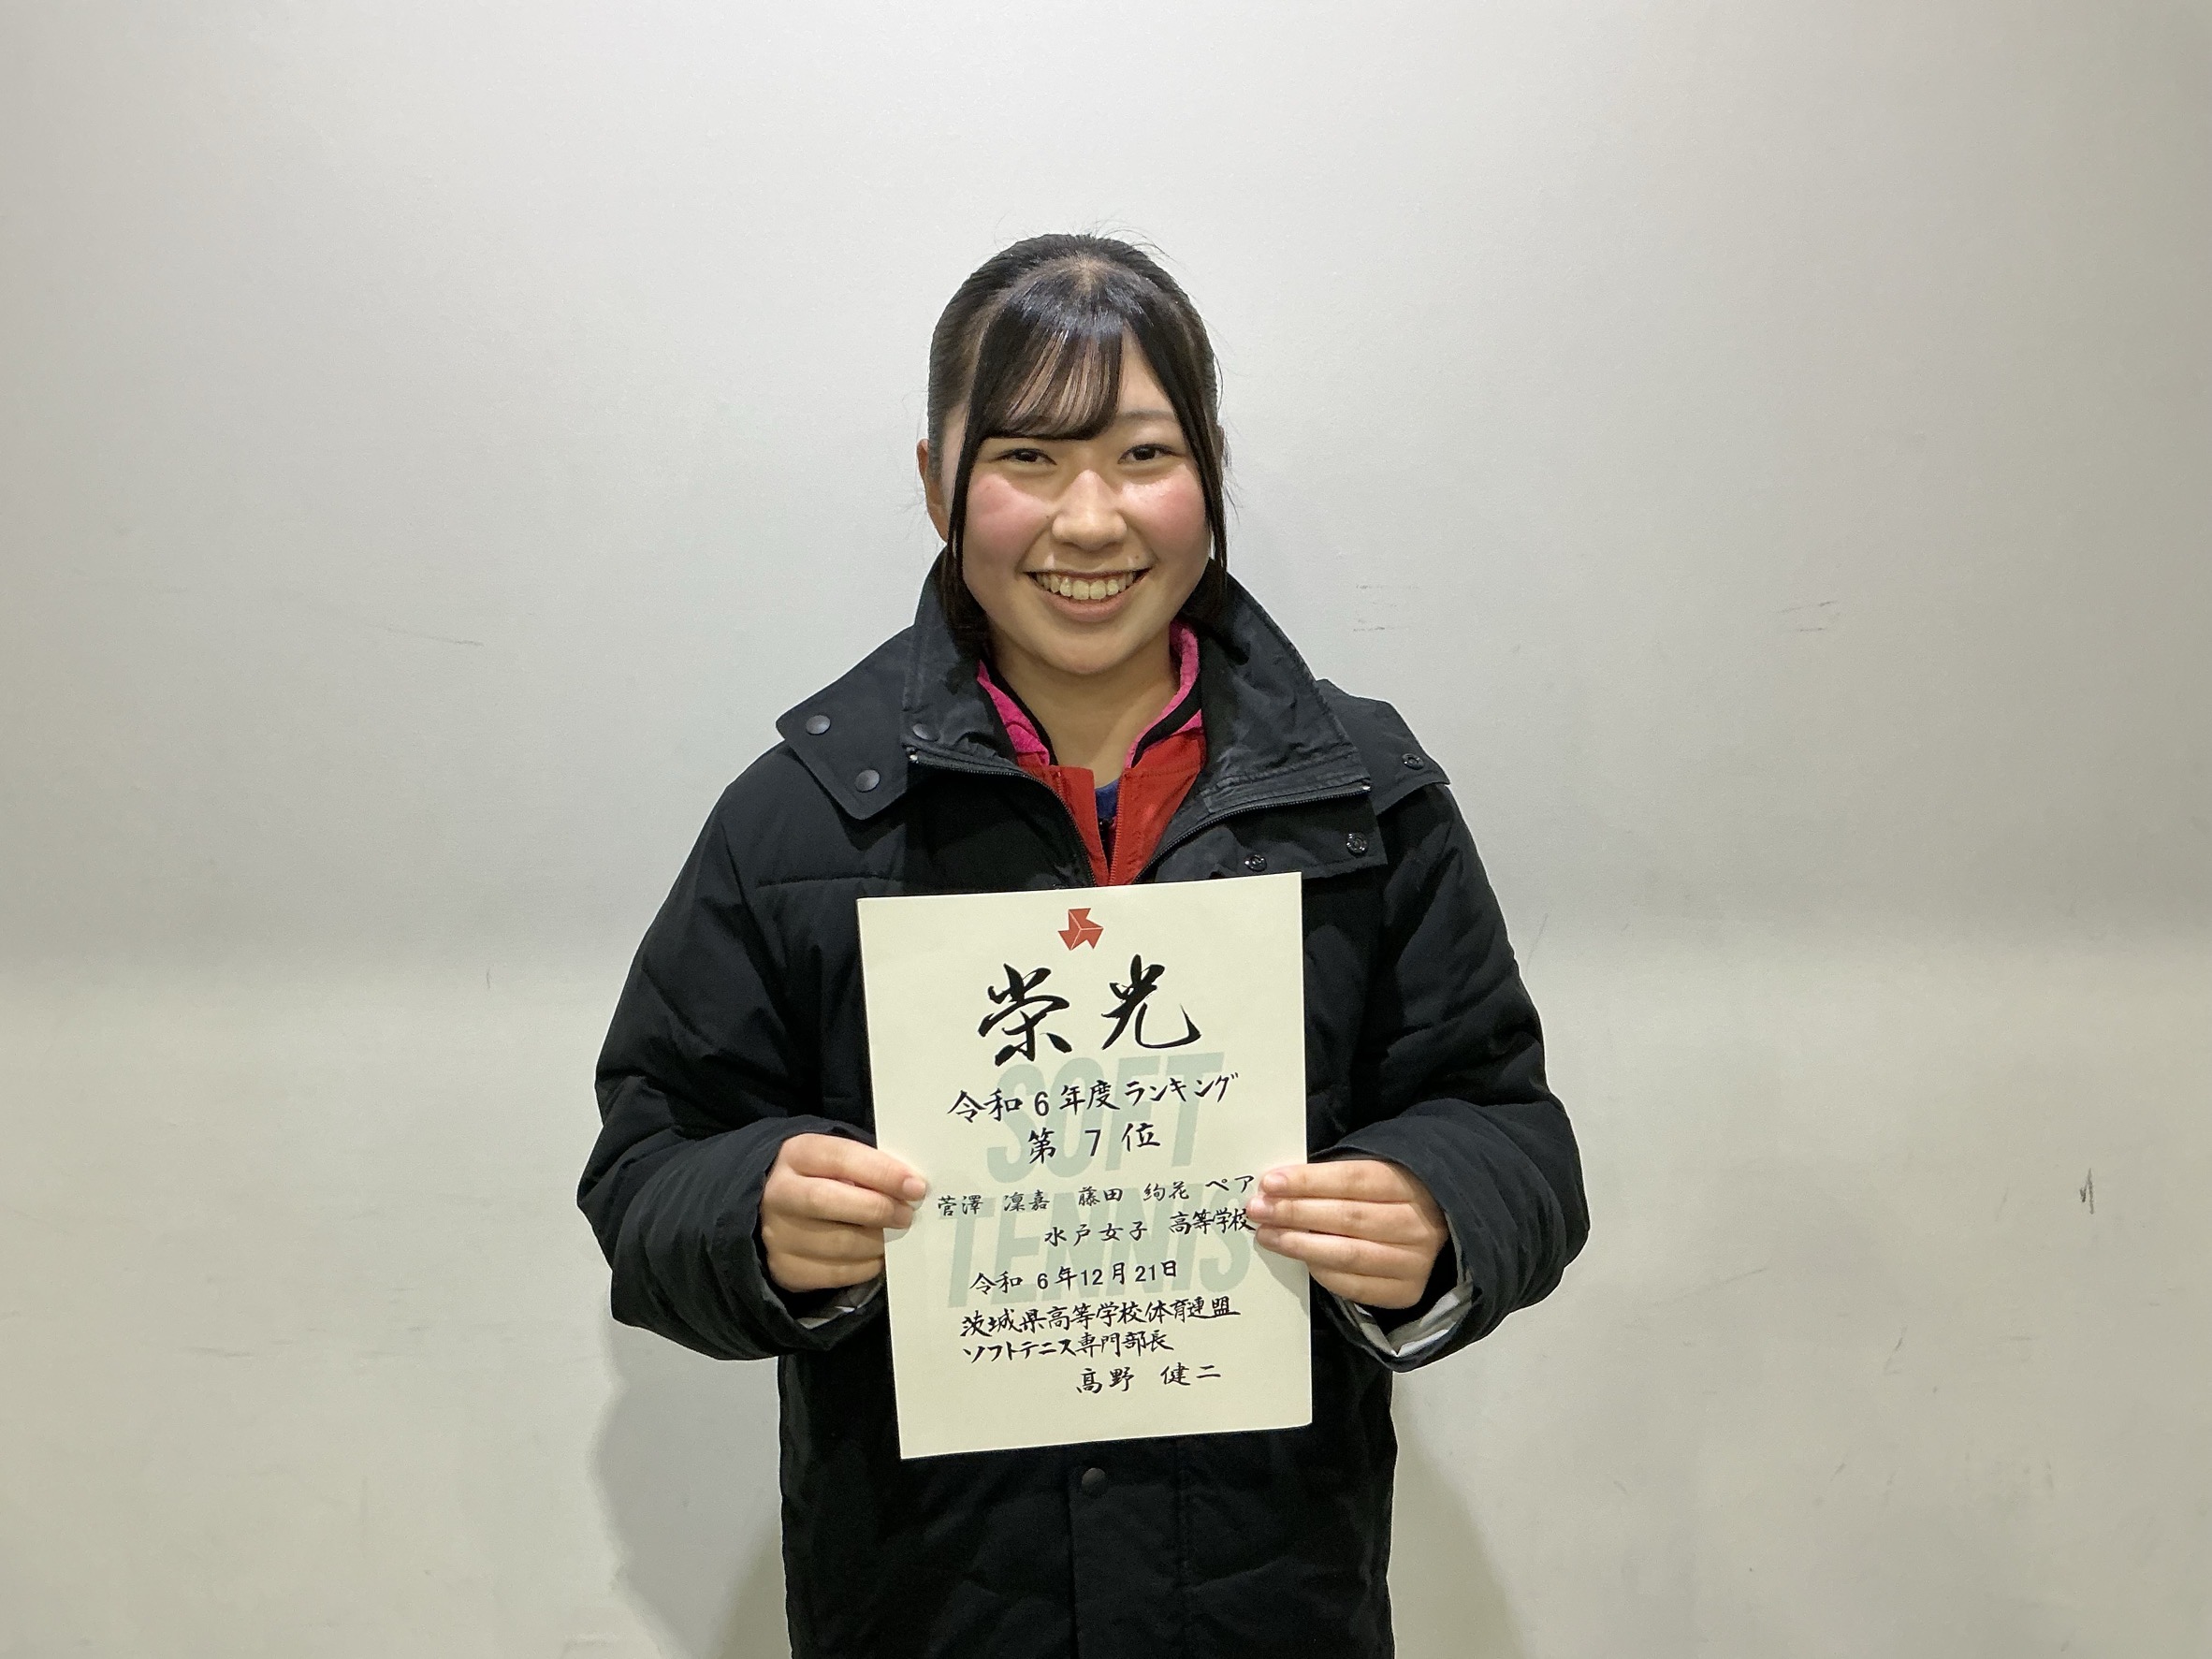 栄光
SOFT
TENNIS
令和6年度ランキング
第7位
菅澤 凜嘉 藤田 絢花 ペア
水戸女子 高等学校
令和6年12月21日
茨城県高等学校体育連盟
ソフトテニス専門部長
髙野 健二